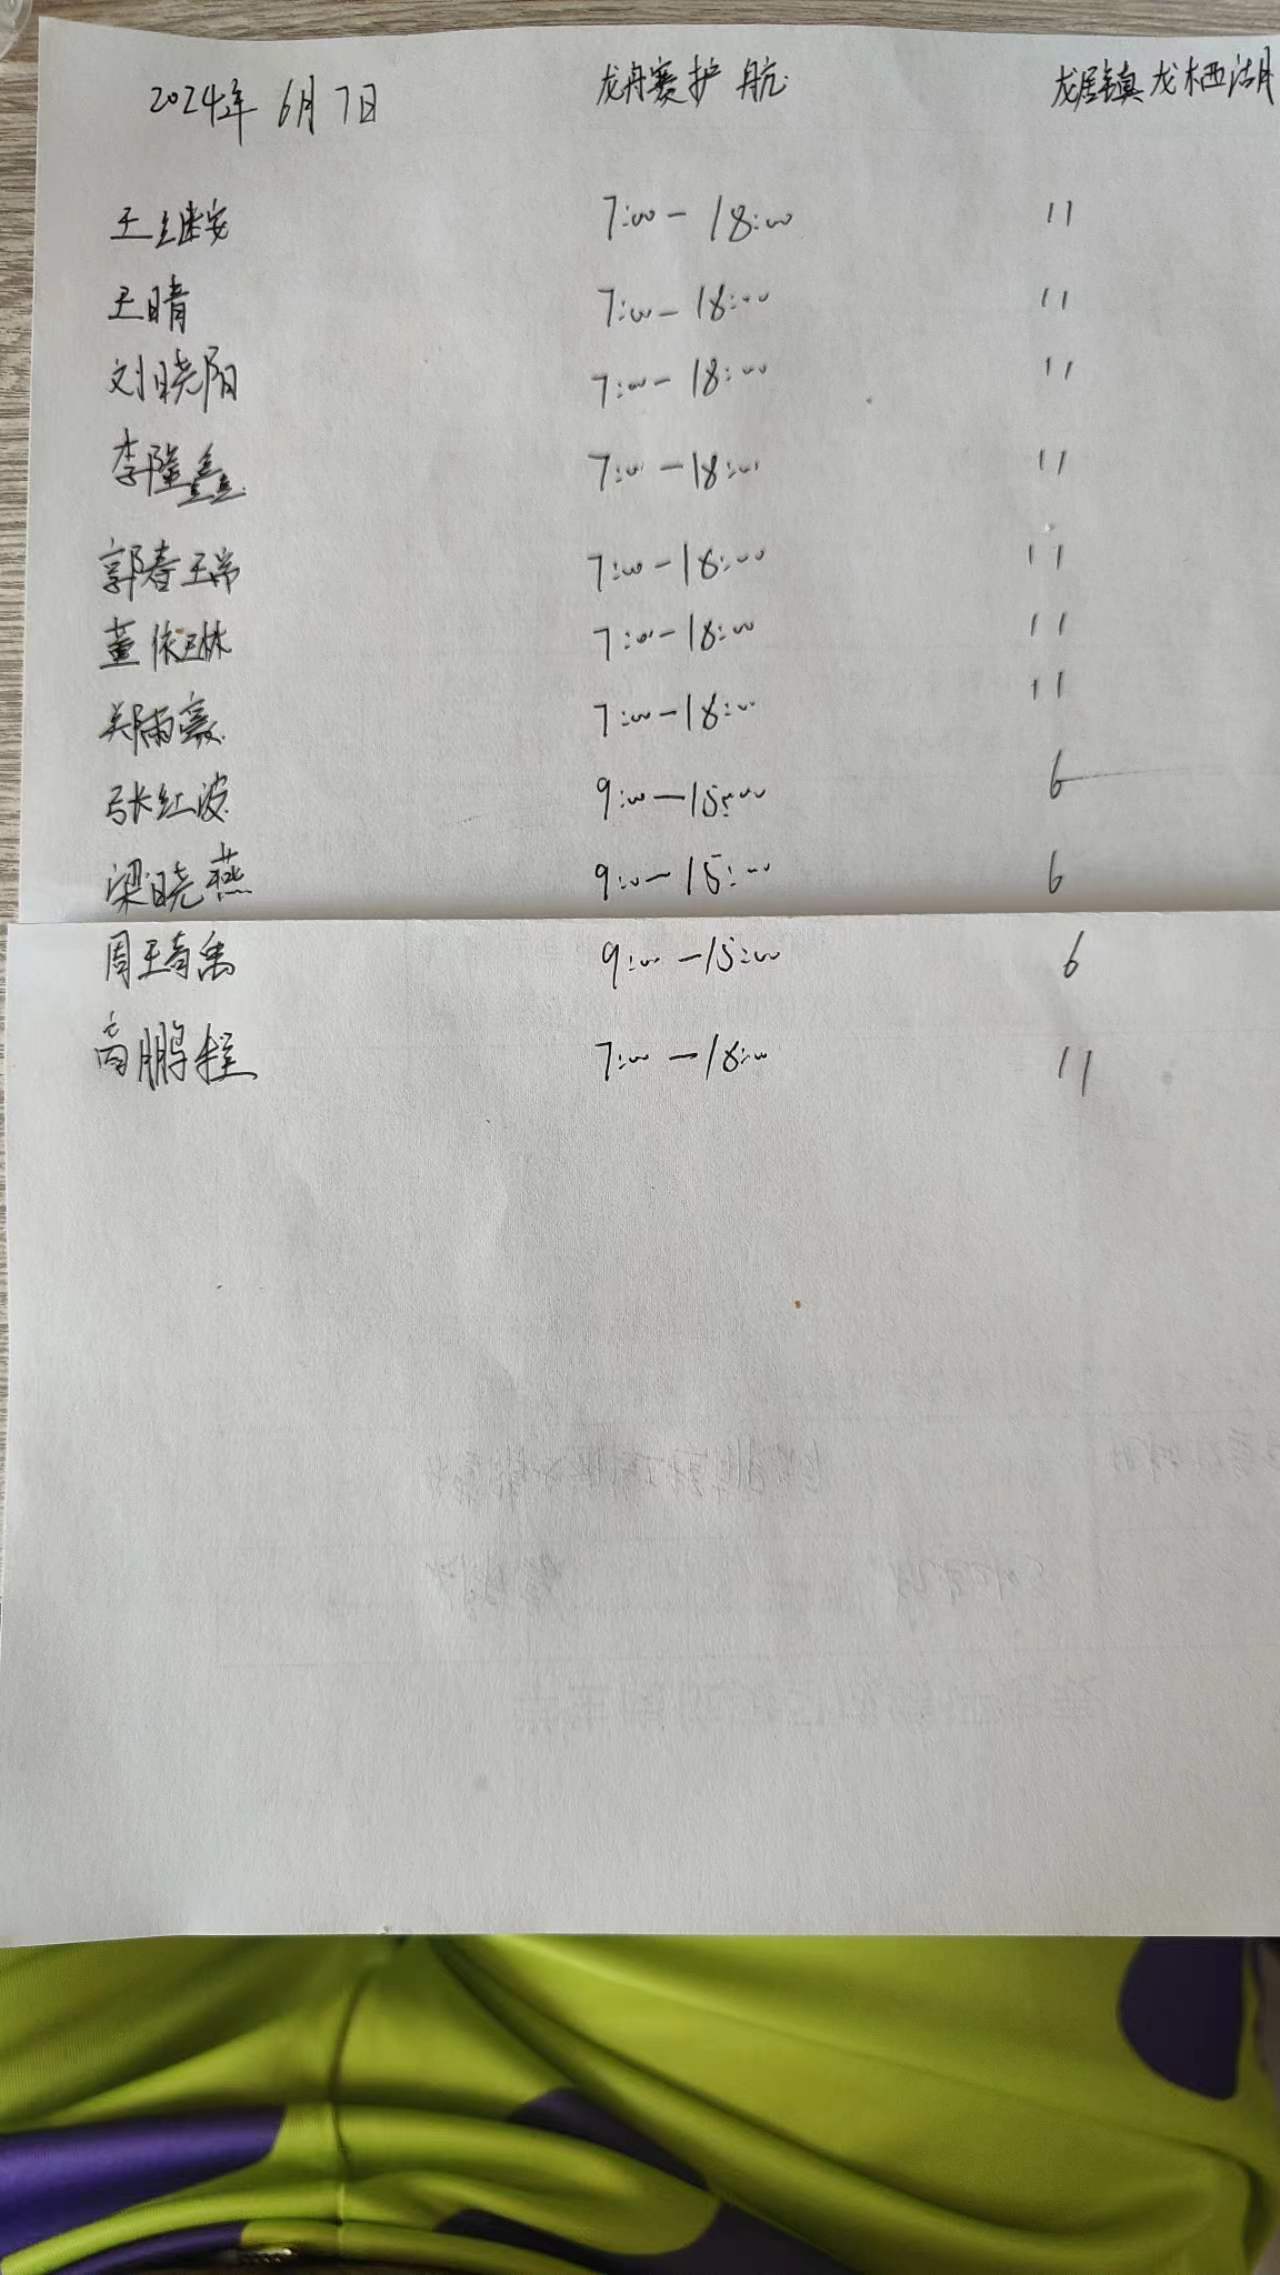 2024年 6月7日 龙舟赛护航 龙居镇龙栖湖
王继安 7:00-18:00 11
王晴 7:00-18:00 11
刘晓阳 7:00-18:00 11
李隆鑫 7:00-18:00 11
郭春瑞 7:00-18:00 11
董依琳 7:00-18:00 11
郑雨豪 7:00-18:00 11
张红波 9:00-15:00 6
梁晓燕 9:00-15:00 6
周琦禹 9:00-15:00 6
高鹏程 7:00-18:00 11